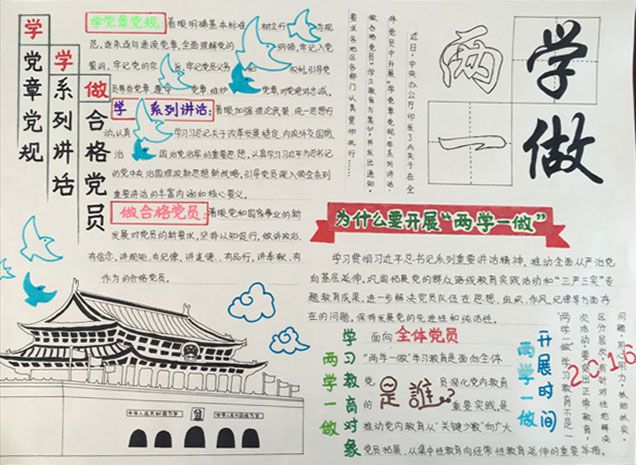 学党章党规
学系列讲话
做合格党员
学党章党规:着眼明确基本标准
范,逐条逐句通读党章,全面理解党的 纲领,牢记入党
誓词,牢记党的宗旨,牢记党员义务 权利,引导党
员尊崇党章,遵守党章,维护党章,对党绝对忠诚。
学系列讲话:着眼加强理论武装、统一思想行
动,认真学习习近平关于改革发展稳定、内政外交国防、
治党治国治军的重要思想,认真学习习近平总书记
的党中央治国理政新思想新战略,引导党员深入领会系列
重要讲话的丰富内涵和核心要义。
做合格党员:着眼党和国家事业的新
发展对党员的新要求,坚持以知促行,做讲政治、
有信念,讲规矩、有纪律,讲道德、有品行,讲奉献、有
作为的合格党员。
近日,中央办公厅印发了《关于在全
体党员中开展“学党章党规、学系列讲话,
做合格党员”学习教育方案》,并发出通知,
要求各地区各部门认真贯彻执行……
两学
一做
为什么要开展“两学一做”
学习贯彻习近平总书记系列重要讲话精神,推动全面从严治党
向基层延伸,巩固拓展党的群众路线教育实践活动和“三严三实”专
题教育成果,进一步解决党员队伍在思想、组织、作风、纪律等方面存
在的问题,保持发展党的先进性和纯洁性。
两学一做
学习教育对象
面向全体党员
“两学一做”学习教育是面向全体
党员深化党内教育
的重要实践,是
是谁?
推动党内教育从“关键少数”向广大
党员拓展、从集中性教育向经常性教育延伸的重要举措。
两学一做
开展时间
2016
“两学一做”学习教育不是一
次活动,要突出正常教育,
区分层次,有针对性地解决
问题,用心用力,抓细抓实,
中华人民共和国万岁